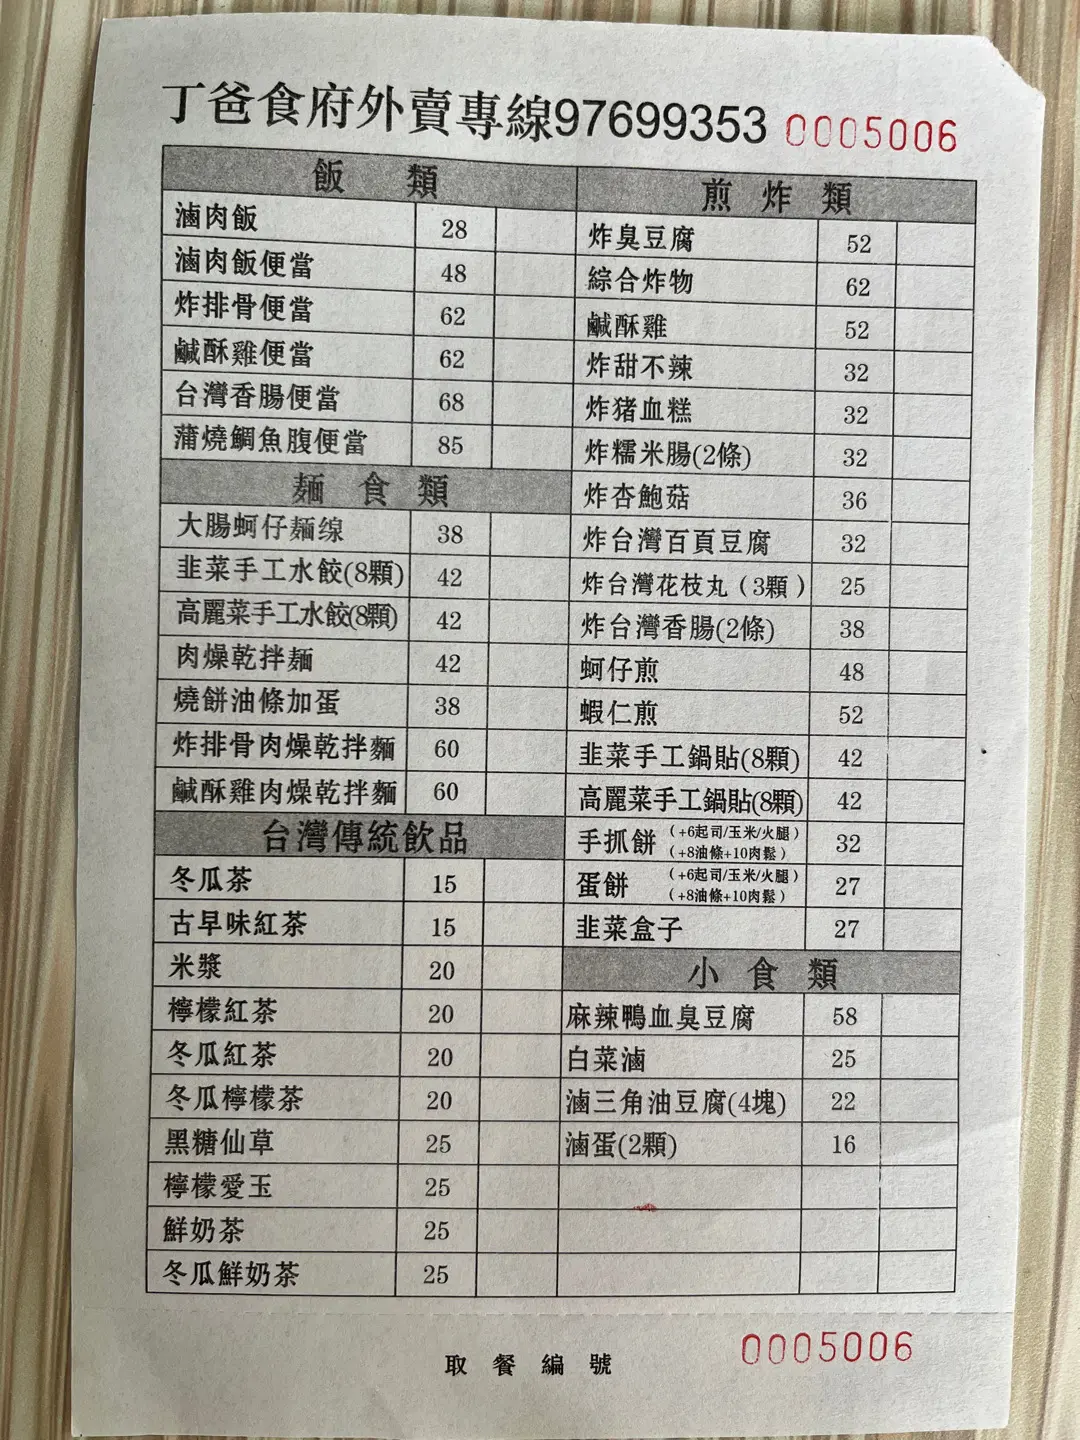 丁爸食府外賣專線97699353 0005006
飯 類
滷肉飯 28
滷肉飯便當 48
炸排骨便當 62
鹹酥雞便當 62
台灣香腸便當 68
蒲燒鯛魚腹便當 85
麵 食 類
大腸蚵仔麵线 38
韭菜手工水餃(8顆) 42
高麗菜手工水餃(8顆) 42
肉燥乾拌麵 42
燒餅油條加蛋 38
炸排骨肉燥乾拌麵 60
鹹酥雞肉燥乾拌麵 60
台灣傳統飲品
冬瓜茶 15
古早味紅茶 15
米漿 20
檸檬紅茶 20
冬瓜紅茶 20
冬瓜檸檬茶 20
黑糖仙草 25
檸檬愛玉 25
鮮奶茶 25
冬瓜鮮奶茶 25
煎 炸 類
炸臭豆腐 52
綜合炸物 62
鹹酥雞 52
炸甜不辣 32
炸猪血糕 32
炸糯米腸(2條) 32
炸杏鮑菇 36
炸台灣百頁豆腐 32
炸台灣花枝丸(3顆) 25
炸台灣香腸(2條) 38
蚵仔煎 48
蝦仁煎 52
韭菜手工鍋貼(8顆) 42
高麗菜手工鍋貼(8顆) 42
手抓餅 (+6起司/玉米/火腿) 32
(+8油條+10肉鬆)
蛋餅 (+6起司/玉米/火腿) 27
(+8油條+10肉鬆)
韭菜盒子 27
小 食 類
麻辣鴨血臭豆腐 58
白菜滷 25
滷三角油豆腐(4塊) 22
滷蛋(2顆) 16
取 餐 編 號 0005006